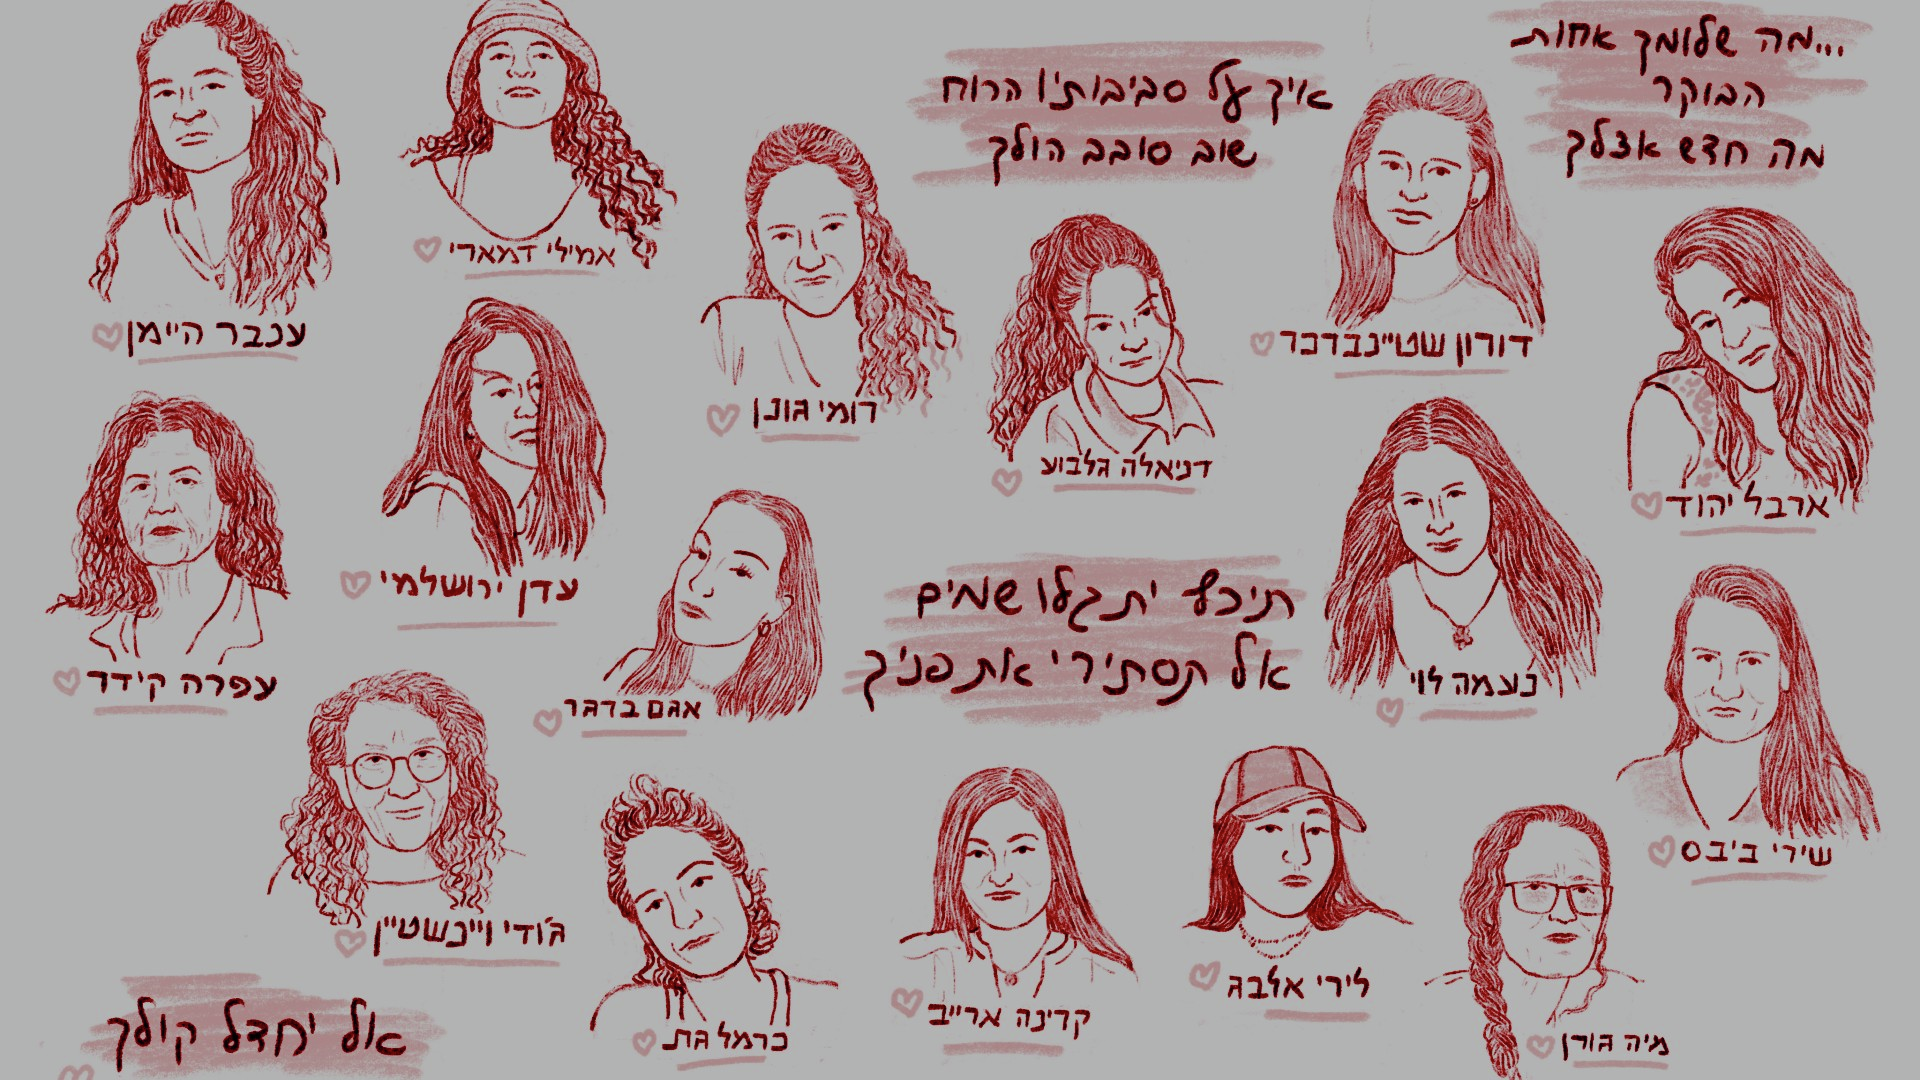 ...מה שלומך אחות
הבוקר
מה חדש אצלך
איך על סביבותיו הרוח
שוב סובב הולך
אמילי דמארי
ענבר היימן
דורון שטיינברכר
רומי גונן
דניאלה גלבוע
ארבל יהוד
עדן ירושלמי
תיכף יתגלו שמים
אל תסתירי את פניך
עפרה קידר
אגם ברגר
נעמה לוי
שירי ביבס
ג'ודי ויינשטיין
לירי אלבג
קרינה ארייב
כרמל גת
מיה גורן
אל יחדל קולך